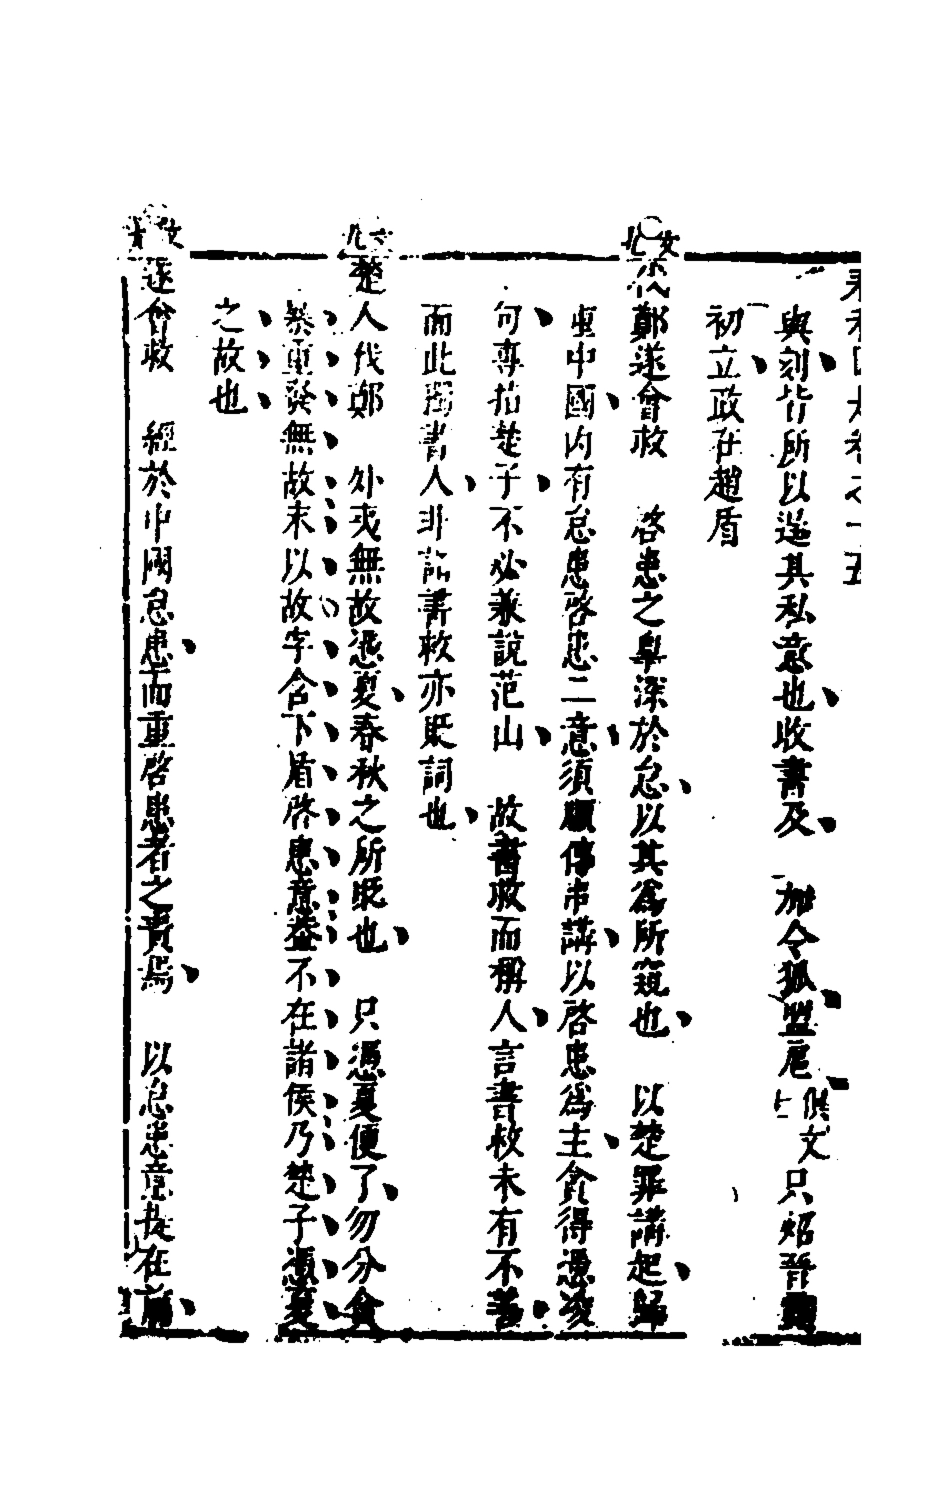 與刻皆所以遥其私意也收書及 加令狐盟扈 俱文 只炤晉
初立政在趙盾
文九
伐鄭遂會救 啓患之辠深於怠以其爲所窺也 以楚罪講起歸
重中國内有怠患啓患二意須順傳串講以啓患爲主貪得憑凌
句專指楚子不必兼說范山 故書救而稱人言書救未有不善
而此獨書人非謂書救亦貶詞也
文九
楚人伐鄭 外夷無故憑夏春秋之所貶也 只憑夏便了勿分貪
暴重發無故末以故字含下盾啓患意蓋不在諸侯乃楚子憑夏
之故也
文九
遂會救 經於中國怠患而重啓患者之責焉 以怠患意提在前